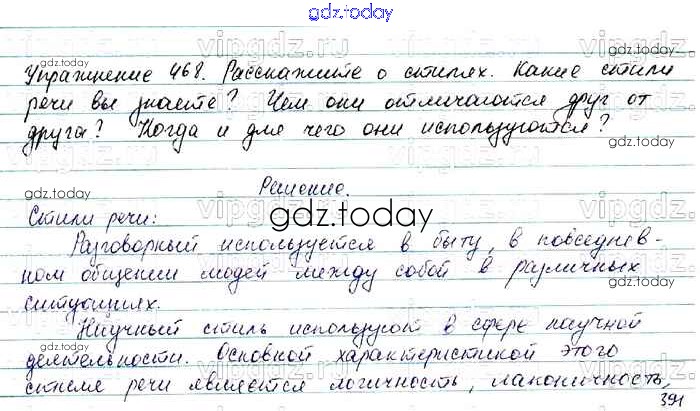 gdz.today
Упражнение 468. Расскажите о стилях. Какие стили
речи вы знаете? Чем они отличаются друг от
друга? Когда и для чего они используются?
Решение.
Стили речи:
gdz.today
Разговорный используется в быту, в повседнев-
ном общении людей между собой в различных
ситуациях.
Научный стиль используют в сфере научной
деятельности. Основной характеристикой этого
стиле речи является логичность, лаконичность,
391